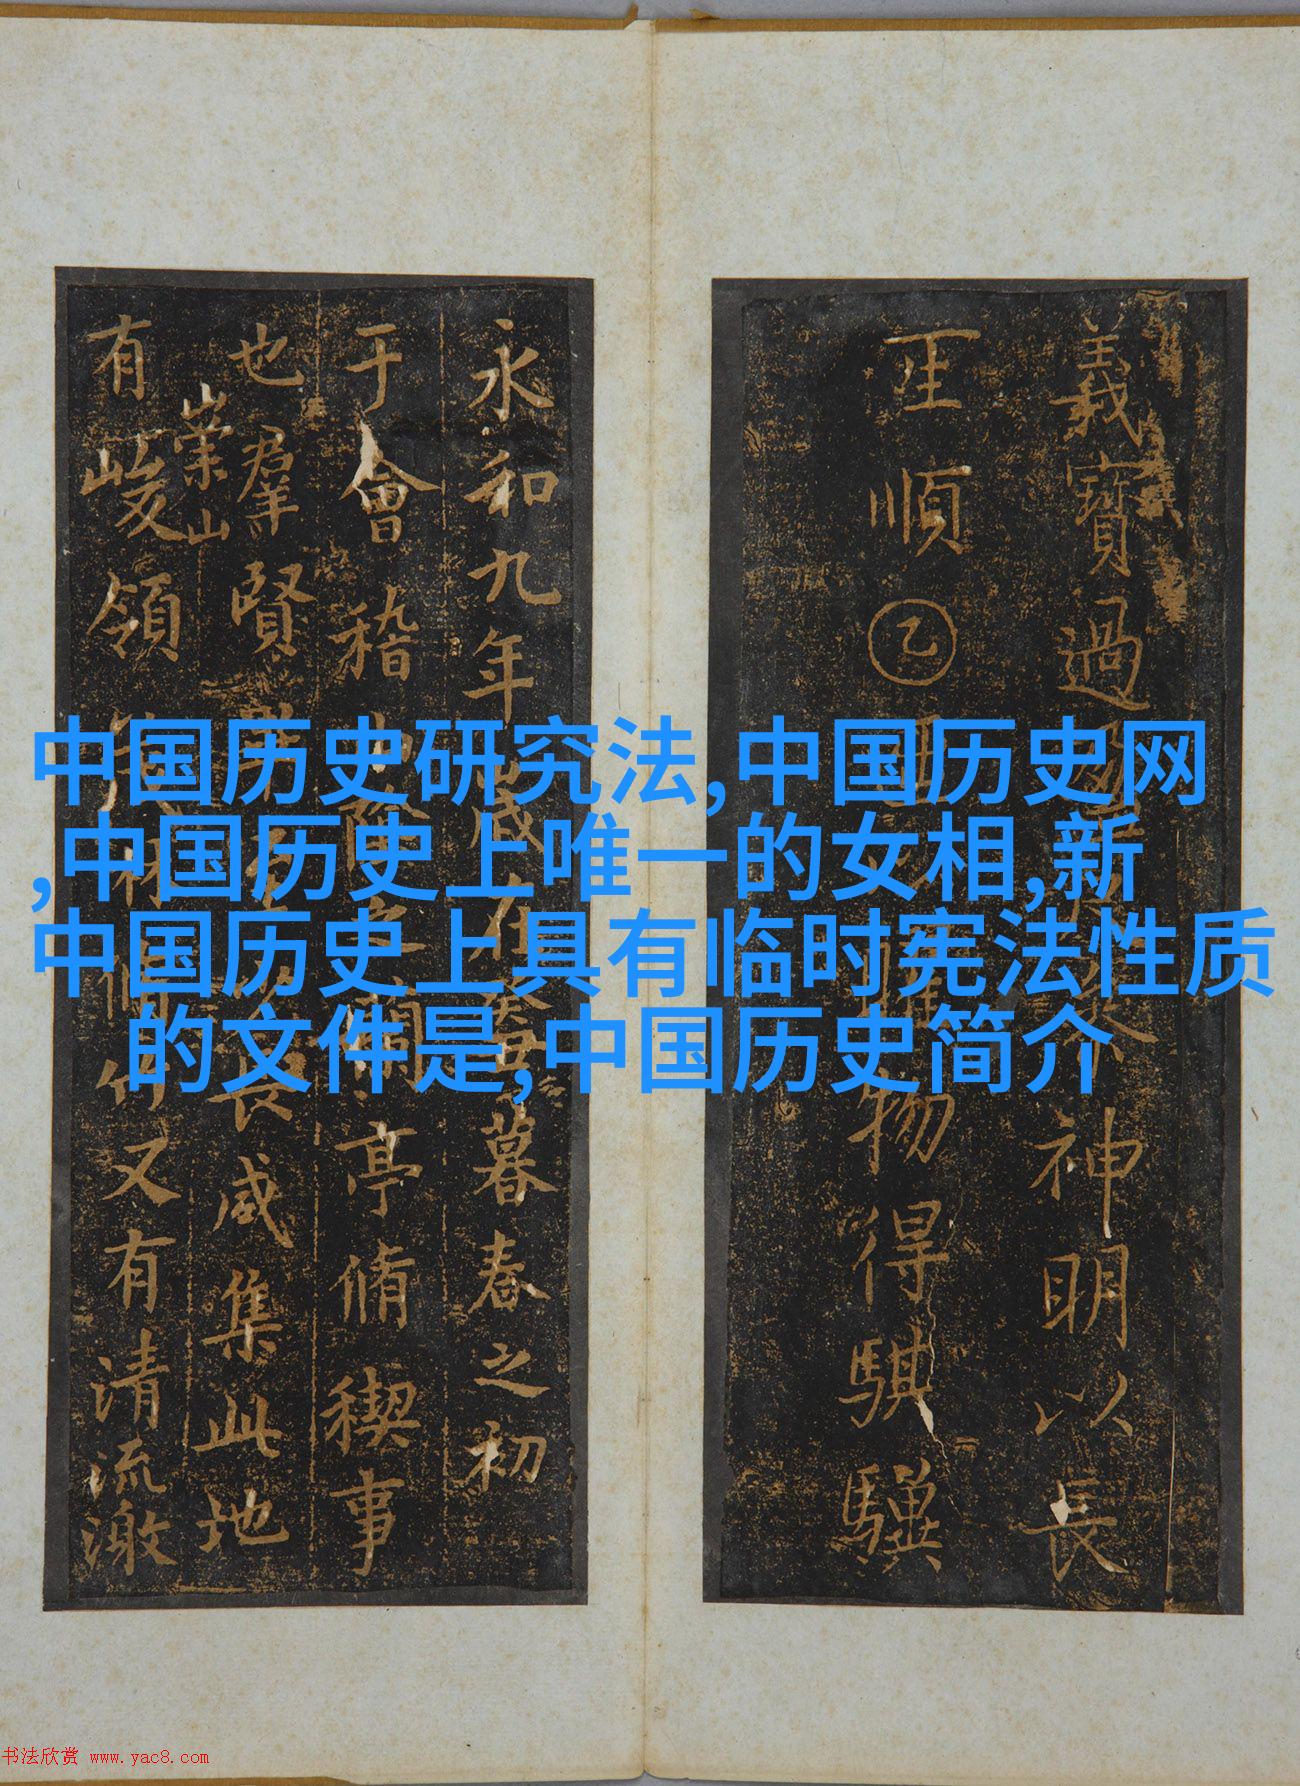 中国历史研究法,中国历史网
,中国历史上唯一的女相,新
中国历史上具有临时宪法性质
的文件是,中国历史简介
義寶過神明以長
順乙物得騏驥
永和九年歲在癸丑暮春之初
于會稽山陰之蘭亭脩稧事
也群賢畢至少長咸集此地
崇山
有峻領茂林脩竹又有清流激
书法欣赏 www.yac8.com